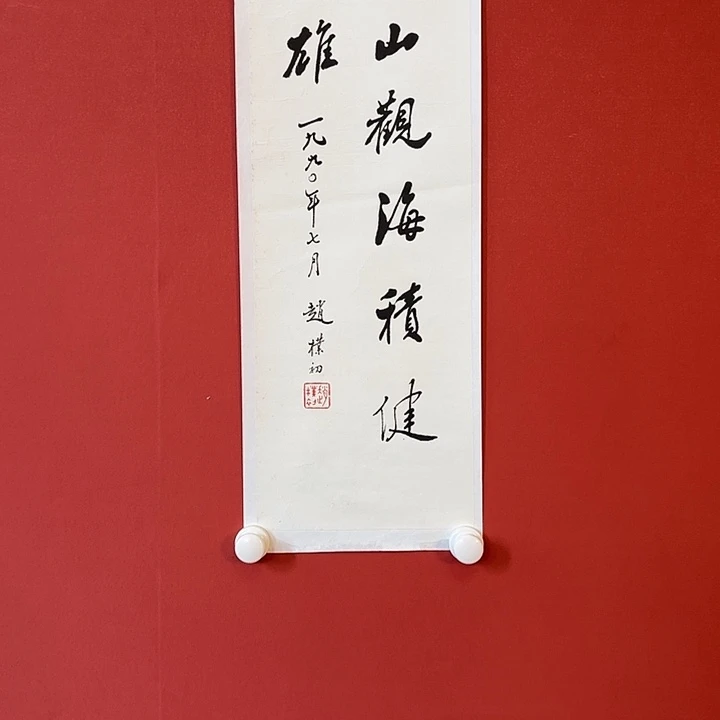 山觀海積健
雄
一九九〇年七月 趙樸初